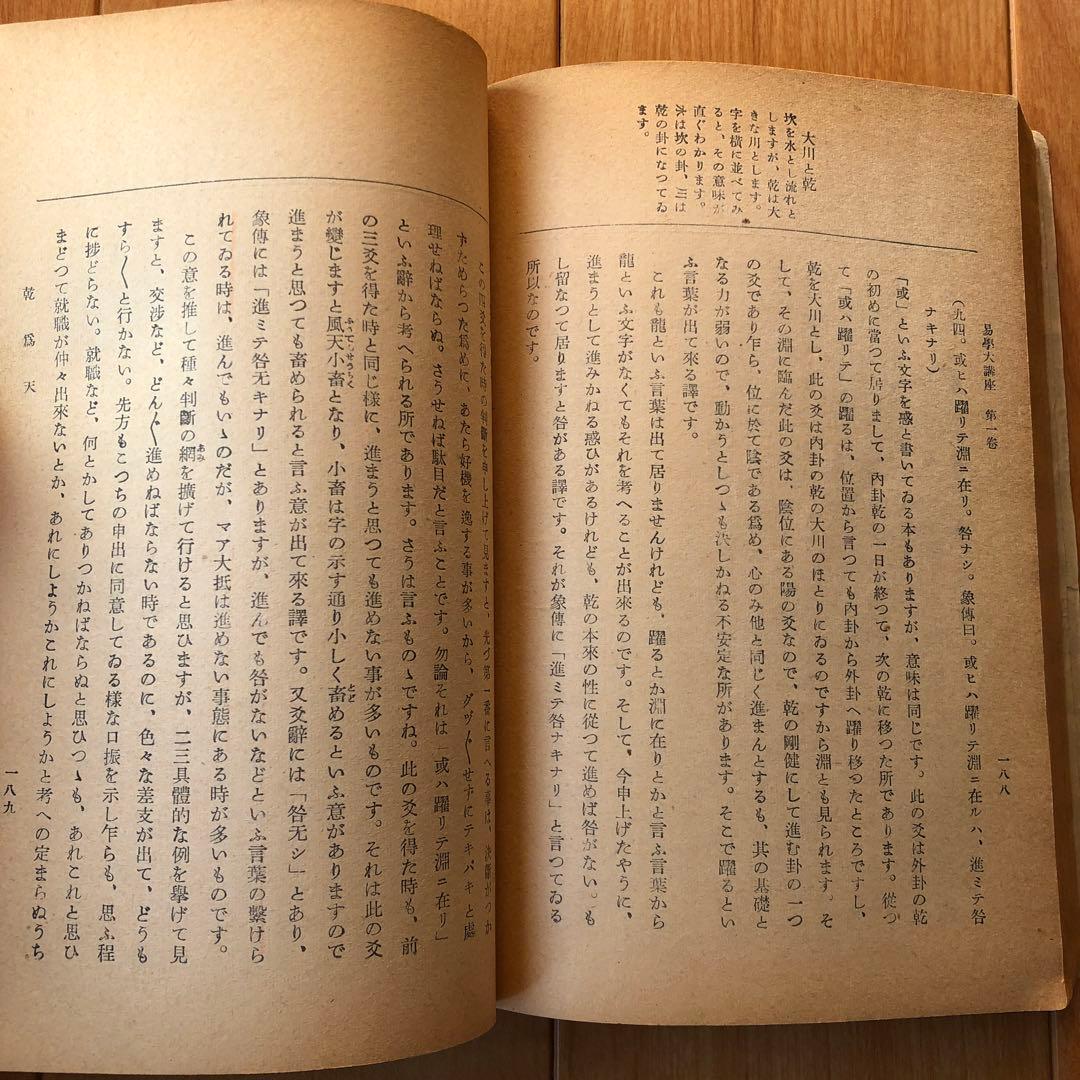 易學大講座 第一卷
一八八
大川と乾
坎を水とし流れと
しますが、乾は大
きな川とします。
字を横に並べてみ
ると、その意味が
直ぐわかります。
は坎の卦、三は
乾の卦になつてゐ
ます。
(九四。或ヒハ躍リテ淵ニ在リ。咎ナシ。象傳曰。或ヒハ躍リテ淵ニ在ルハ、進ミテ咎
ナキナリ)
「或」といふ文字を惑と書いてゐる本もありますが、意味は同じです。此の爻は外卦の乾
の初めに當つて居りまして、內卦乾の一日が終つて、次の乾に移つた所であります。從つ
て「或ハ躍リテ」の躍るは、位置から言つても內卦から外卦へ躍り移つたところですし、
乾を大川とし、此の爻は內卦の乾の大川のほとりにゐるのですから淵とも見られます。そ
して、その淵に臨んだ此の爻は、陰位にある陽の爻なので、乾の剛健にして進む卦の一つ
の爻であり乍ら、位に於て陰である爲め、心のみ他と同じく進まんとするも、其の基礎と
なる力が弱いので、動かうとしつゝも決しかねる不安定な所があります。そこで躍るとい
ふ言葉が出て來る譯です。
これも龍といふ言葉は出て居りませんけれども、躍るとか淵に在りとかと言ふ言葉から
龍といふ文字がなくてもそれを考へることが出來るのです。そして、今申上げたやうに、
進まうとして進みかねる惑ひがあるけれども、乾の本來の性に從つて進めば咎がない。も
し留なつて居りますと咎がある譯です。それが象傳に「進ミテ咎ナキナリ」と言つてゐる
所以なのです。
この四爻を得た時の判斷を申し上げて見ますと、先づ第一番に言へる事は、決斷がつか
ずためらつた爲めに、あたら好機を逸する事が多いから、グヅ〳〵せずにテキパキと處
理せねばならぬ。さうせねば駄目だと言ふことです。勿論それは「或ハ躍リテ淵ニ在リ」
といふ辭から考へられる所であります。さうは言ふものゝですね。此の爻を得た時も、前
の三爻を得た時と同じ樣に、進まうと思つても進めない事が多いものです。それは此の爻
が變じますと風天小畜となり、小畜は字の示す通り小しく畜めるといふ意がありますので
進まうと思つても畜められると言ふ意が出て來る譯です。又爻辭には「咎无シ」とあり、
象傳には「進ミテ咎无キナリ」とありますが、進んでも咎がないなどといふ言葉の繫けら
れてゐる時は、進んでもいゝのだが、マア大抵は進めない事態にある時が多いものです。
この意を推して種々判斷の網を擴げて行けると思ひますが、二三具體的な例を擧げて見
ますと、交涉など、どん〳〵進めねばならない時であるのに、色々な差支が出て、どうも
すら〳〵と行かない。先方もこつちの申出に同意してゐる樣な口振を示し乍らも、思ふ程
に捗どらない。就職など、何とかしてありつかねばならぬと思ひつゝも、あれこれと思ひ
まどつて就職が仲々出來ないとか、あれにしようかこれにしようかと考への定まらぬうち
乾爲天
一八九